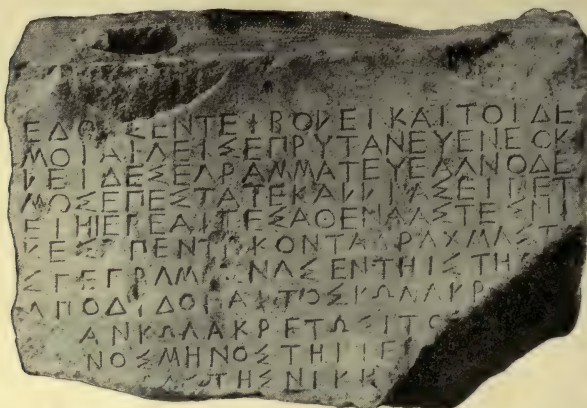 ΕΔΟΧΣΕΝΤΕΙΒΟΛΕΙΚΑΙΤΟΙΔΕ
ΜΟΙΑΙΓΕΙΣΕΠΡΥΤΑΝΕΥΕΝΕΟΚ
ΛΕΙΔΕΣΕΓΡΑΜΜΑΤΕΥΕΑΓΝΟΔΕ
ΜΟΣΕΠΕΣΤΑΤΕΚΑΛΛΙΑΣΕΙΠΕΤ
ΕΙΗΙΕΡΕΑΙΤΕΣΑΘΕΝΑΑΣΤΕΣΝΙ
ΚΕΣΠΕΝΤΕΚΟΝΤΑΔΡΑΧΜΑΣΤ
ΣΓΕΓΡΑΜΜΕΝΑΣΕΝΤΗΙΣΤΗ
ΑΠΟΔΙΔΟΝΑΙΤΟΣΚΩΛΑΚΡ
ΑΝΚΩΛΑΚΡΕΤΩΣΙΤΟ
ΝΟΣΜΗΝΟΣΤΗΙΙΕ
ΑΣΤΗΣΝΙΚΗ